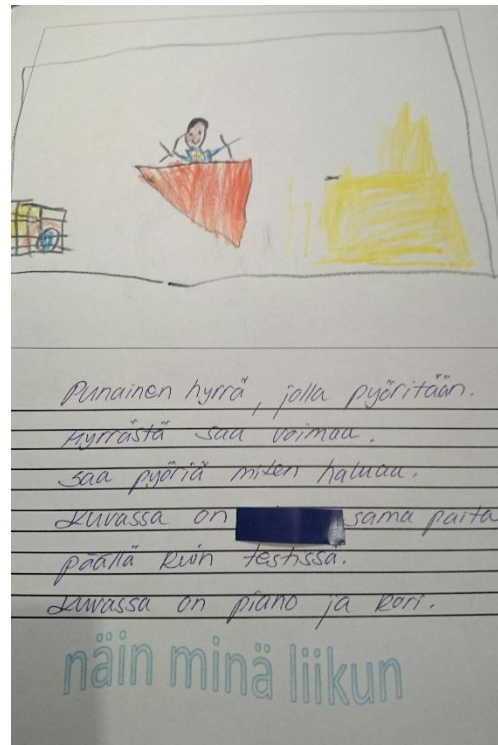 Punainen hyrrä, jolla pyöritään.
Hyrrästä saa voimaa.
Saa pyöriä miten haluaa.
Kuvassa on sama paita
päällä kuin testissä.
Kuvassa on piano ja kori.
näin minä liikun